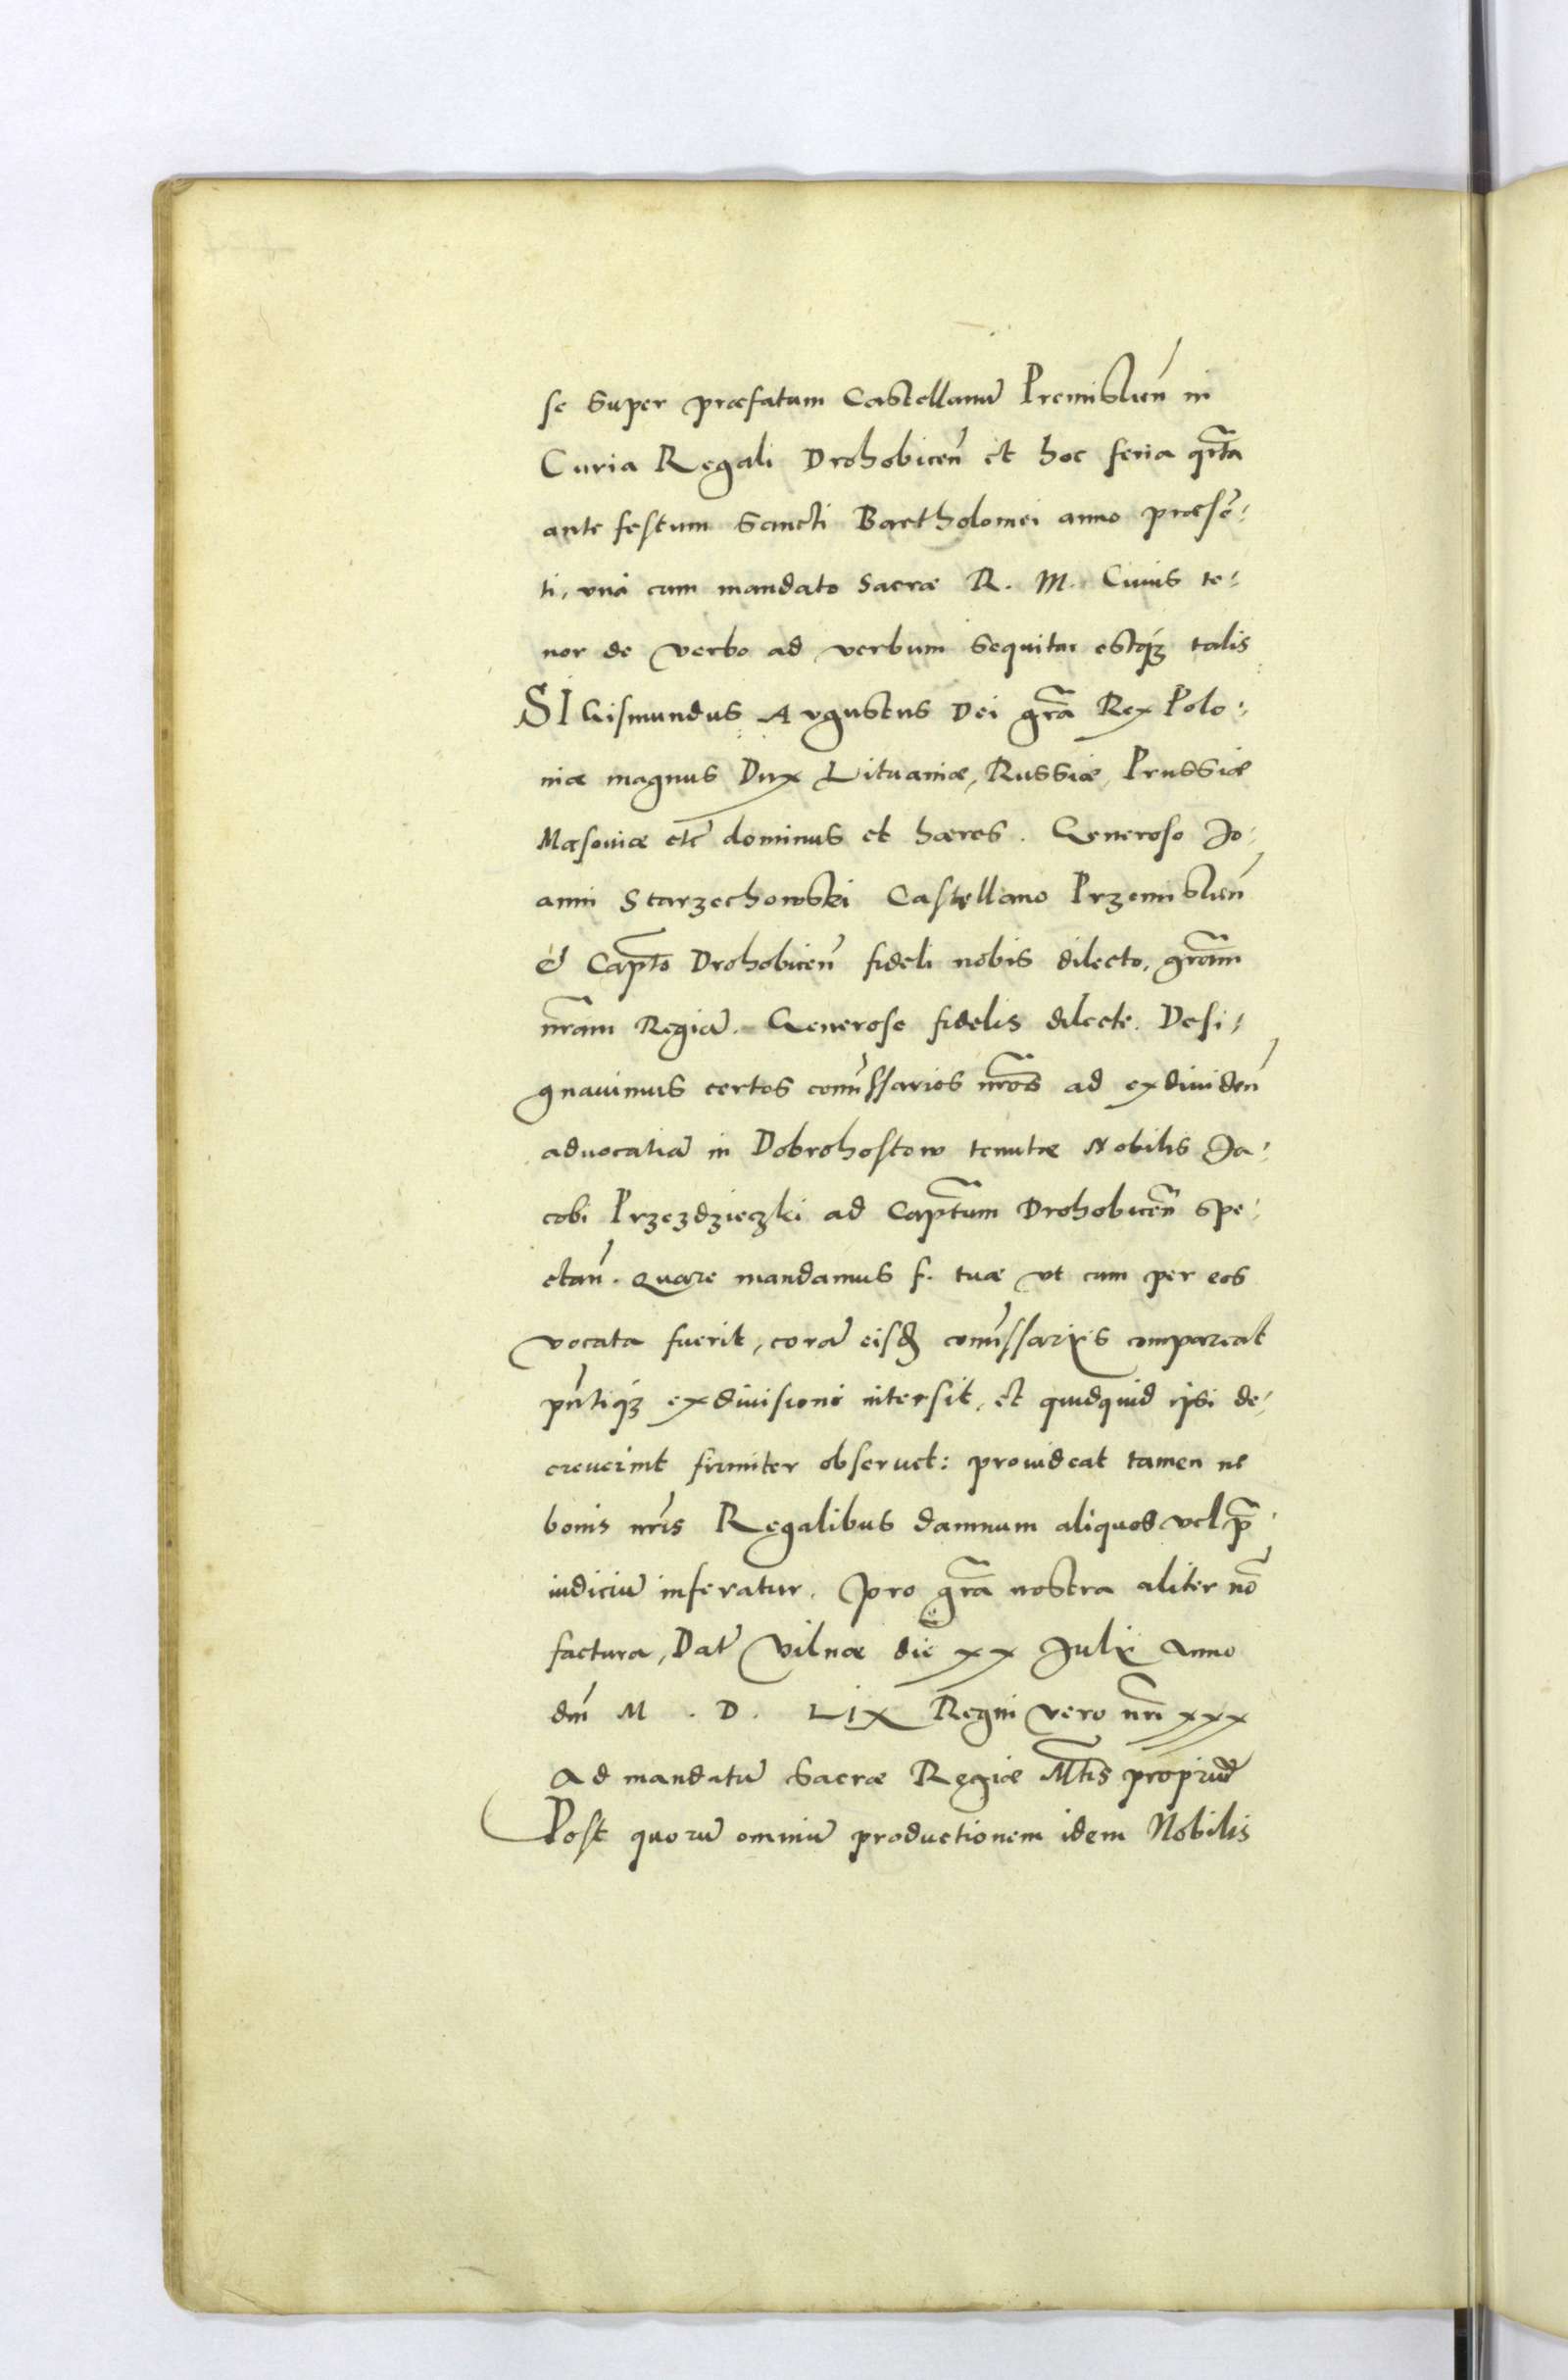 se super præfatum Castellanū Premislien̄ in
Curia Regali Drohobicen̄ et hoc feria qr̄ta
ante festum Sancti Bartholomei anno præsē:
ti, vná cum mandato Sacræ R. M. Cuius te:
nor de verbo ad verbum sequitur estq́ꝫ talis
SIGismundus Avgustus Dei gr̄a Rex Polo:
niæ magnus Dux Lituaniæ, Russiæ, Prussiæ
Masouiæ etc̄ dominus et hæres. Generoso Jo:
anni Starzechowski Castellano Przemislien̄
& Cap̄to Drohobicen̄ fideli nobis dilecto, gr̄am
nr̄am Regiā. Generose fidelis dilecte. Desi:
gnauimus certos com̄issarios nr̄os ad exdiuiden̄
aduocatiā in Dobrohostow tenutæ Nobilis Ja:
cobi Przezdzieczki ad Cap̄tum Drohobicen̄ spe:
ctan̄. Quare mandamus f. tuæ vt cum per eos
vocata fuerit, corā eisđ com̄issarijs compareat
pn̄tiqꝫ exdiuisioni intersit, et quidquid ipsi de:
creuerint firmiter obseruet: prouideat tamen ne
bonis nr̄is Regalibus damnum aliquod vel p̄:
iudiciū inferatur. Pro gr̄a nostra aliter nō
factura, Dat̄ Vilnæ die xx Julij Anno
dn̄i M . D . LIX Regni vero nr̄i xxx
Ad mandatū Sacræ Regiæ Mt̄is propriū
Post quorū omniū productionem idem Nobilis